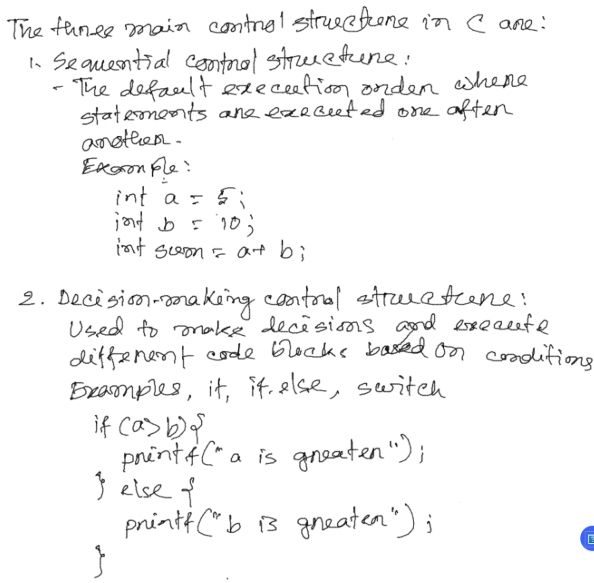 The three main control structure in C are:
1. Sequential control structure:
- The default execution order where
statements are executed one after
another.
Example:
int a = 5;
int b = 10;
int sum = a+ b;
2. Decision-making control structure:
Used to make decisions and execute
different code blocks based on conditions
Examples, if, if-else, switch
if (a>b){
printf("a is greater");
} else {
printf("b is greater");
}